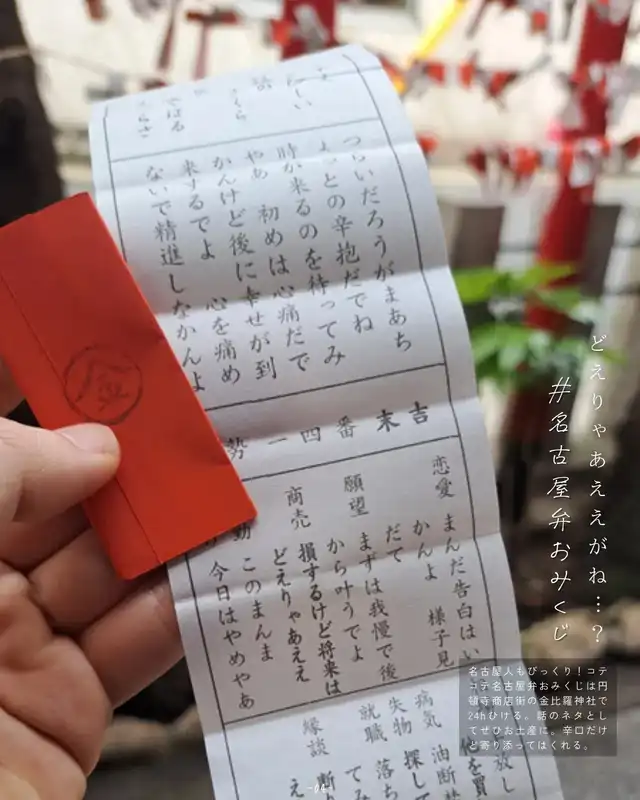 つらいだろうがまあち
ょっとの辛抱だでね
時が来るのを待ってみ
やぁ 初めは心痛だで
かんけど後に幸せが到
来するでよ 心を痛め
ないで精進しなかんよ
勢 一四番 末吉
恋愛 まんだ告白はい
かんよ 様子見
だて
願望 まずは我慢で後
から叶うでよ
商売 損するけど将来は
どえりゃあええ
動 このまんま
今日はやめやぁ
病気 油断
失物 探して
就職 落ち
てみ
縁談 断
え
金
どえりゃあええがね…？
#名古屋弁おみくじ
名古屋人もびっくり！コテ
コテ名古屋弁おみくじは円
頓寺商店街の金比羅神社で
24hひける。話のネタとし
てぜひお土産に。辛口だけ
ど寄り添ってはくれる。
-04-